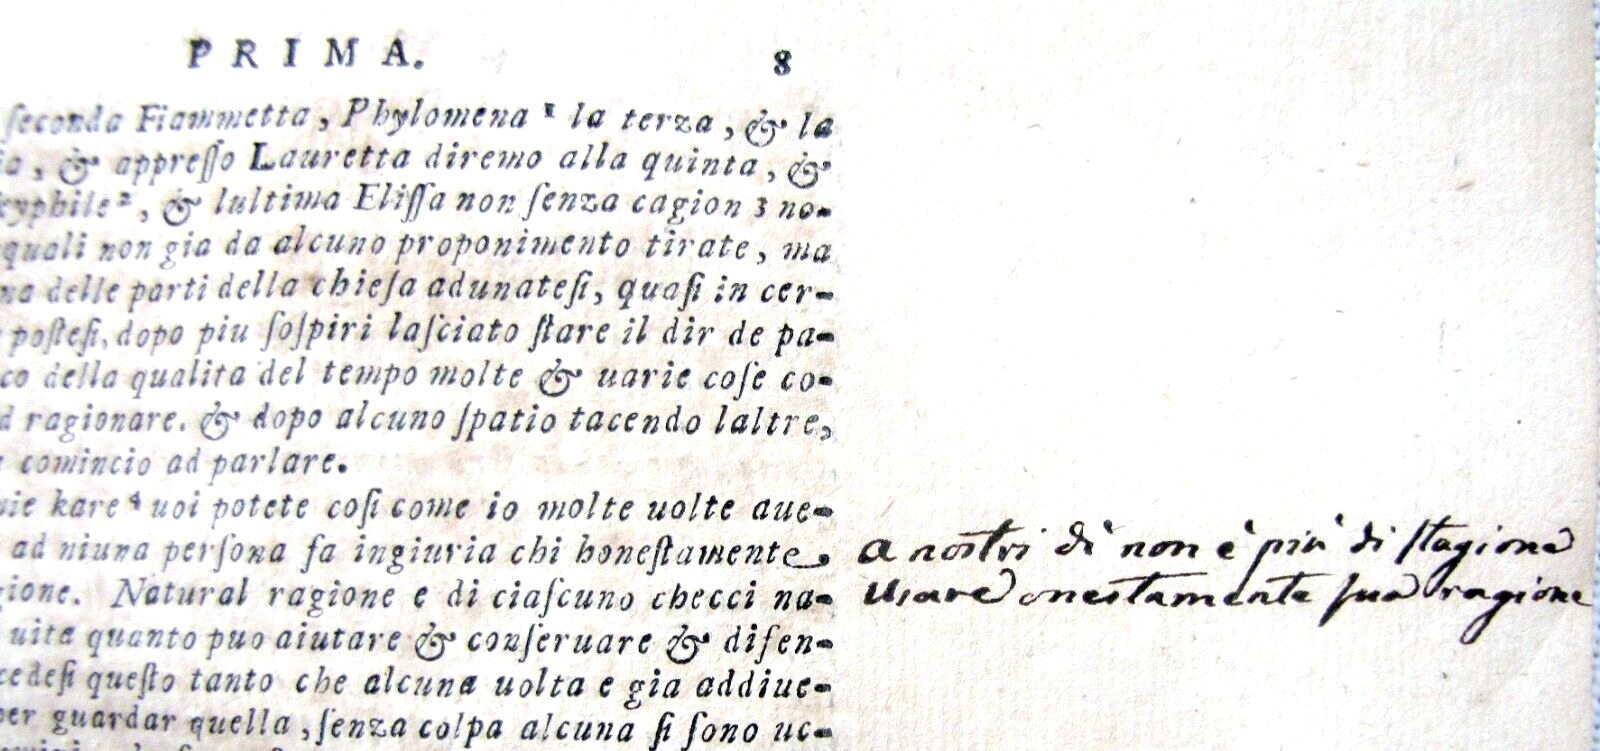 PRIMA. 8
ſeconda Fiammetta, Phylomena ¹ la terza, & la
ia, & appreſſo Lauretta diremo alla quinta, &
eyphile ², & lultima Eliſſa non ſenza cagion 3 no-
quali non gia da alcuno proponimento tirate, ma
na delle parti della chieſa adunateſi, quaſi in cer-
poſteſi, dopo piu ſoſpiri laſciato ſtare il dir de pa-
co della qualita del tempo molte & uarie coſe co-
d ragionare. & dopo alcuno ſpatio tacendo laltre,
comincio ad parlare.
nie kare ⁴ uoi potete coſi come io molte uolte aue-
ad niuna perſona fa ingiuria chi honeſtamente
gione. Natural ragione e di ciaſcuno checci na-
uita quanto puo aiutare & conſeruare & difen-
cedeſi queſto tanto che alcuna uolta e gia addiue-
per guardar quella, ſenza colpa alcuna ſi ſono uc-
a nostri dì non è più di ſtagione
Usare onestamente ſua ragione